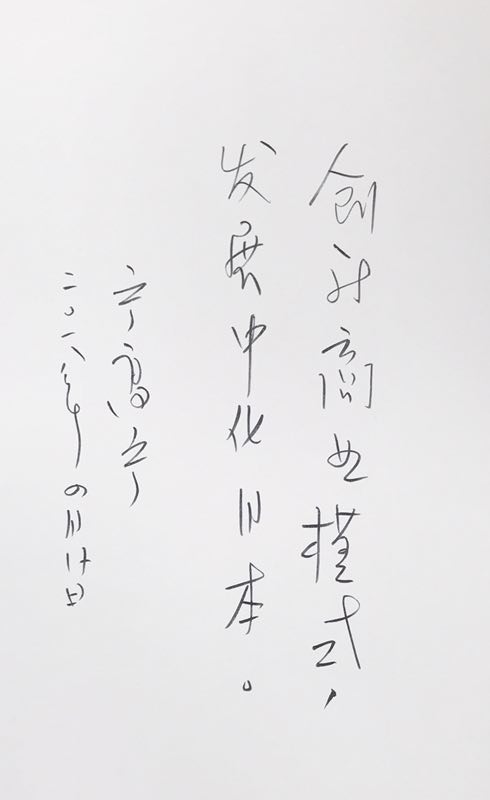 创新商业模式，
发展中化日本。
宁高宁
二〇一八年四月廿日